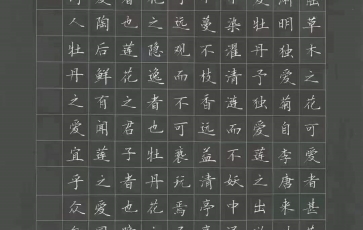 草木之花可爱者甚
明独爱菊自李唐来
牡丹予独爱莲之出
染濯清涟而不妖中
蔓不枝香远益清亭
远观而不可亵玩焉
之隐逸者也牡丹花
也莲花之君子者也
陶后鲜有闻莲之爱
人牡丹之爱宜乎众